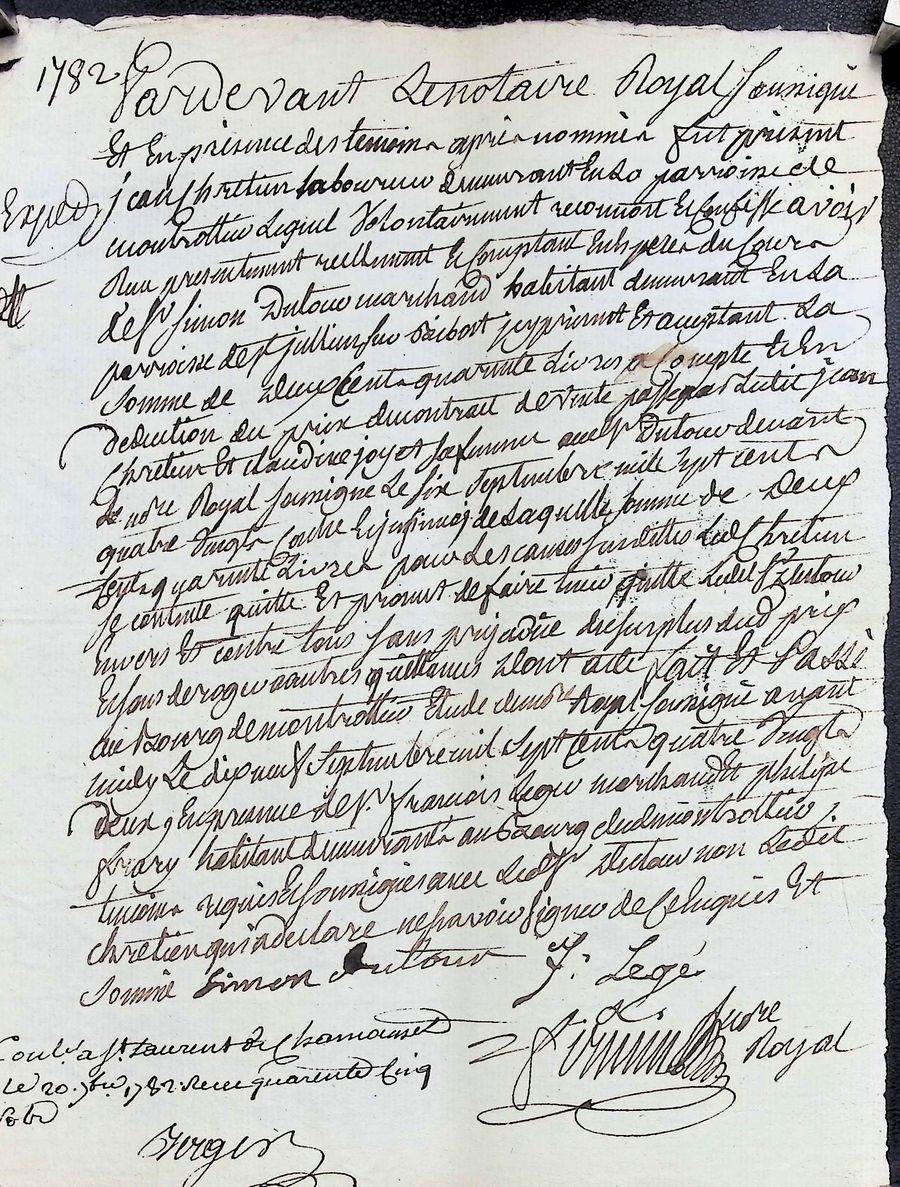 1782
Pardevant Le notaire Royal soussigné
Et En présence des temoins après nommés fut présent
Exped
jean Chretien laboureur demeurant En La parroisse de
montrottier Lequel Volontairement reconnoit Et Confesse avoir
Reçu presentement reellement Et Comptant En Especes du Cours
de Sr Simon Dutour marchand habitant demeurant En La
parroisse de St jullien sur Bibost jcy présent Et aceptant La
Somme de Deux Cents quarante Livres a Compte Et En
Deduction du prix du contrait de vente passé par Ledit jean
Chretien Et Claudine joyet sa femme au Sr Dutour devant
Le nore Royal soussigné Le six Septembre mil sept cents
quatre Vingts Contre Et jnsinué de Laquelle somme de Deux
Cents quarante Livres pour Les causes susdittes Led Chretien
se contente quitte Et promet de faire tenir quitte Ledit Sr Dutour
envers Et contre tous sans prejudice du surplus dud prix
Et sans deroger a autres quittances Dont acte fait Et Passé
au Bourg de montrottier Etude du nore Royal soussigné avant
midy Le dix neuf Septembre mil Sept Cents quatre Vingts
Deux, En presence de Sr francois Legé marchand Et philipe
frary habitant demeurants au Bourg dud montrottier,
temoins requis Et soussignés avec Led Sr Dutour non Ledit
Chretien qui a declaré ne savoir signer de Ce Enquis Et
Sommé Simon dutour f. Legé
nore
Royal
Conle a St Laurent de Chamousset
Le 20 7bre 1782 Reçu quarente Cinq
Sols
Verger